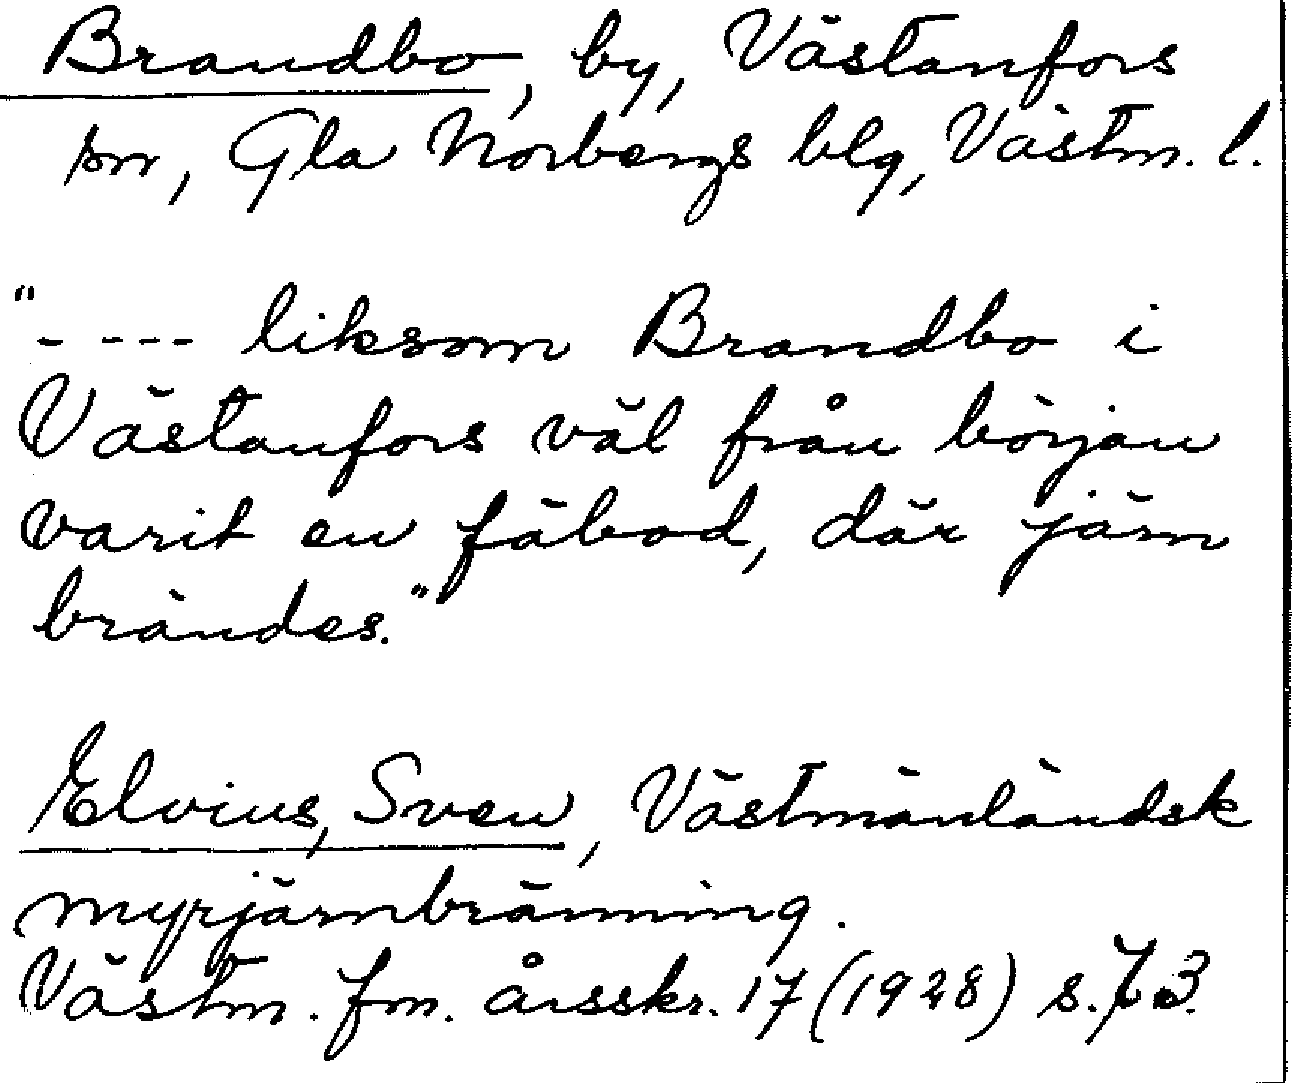 Brandbo, by, Västanfors
sn, Gla Norbergs blg, Västm. l.
"- --- liksom Brandbo i
Västanfors väl från början
varit en fäbod, där järn
brändes."
Elvius, Sven, Västmanländsk
myrjärnbränning.
Västm. fm. årsskr. 17 (1928) s.